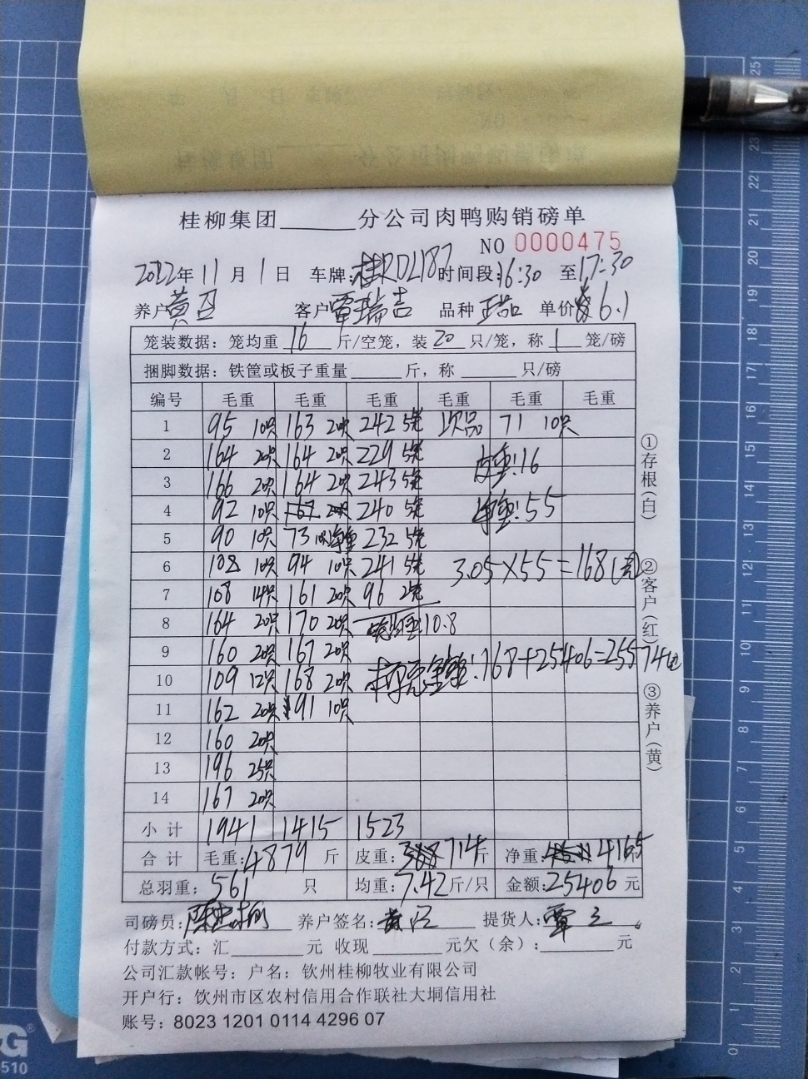 桂柳集团______分公司肉鸭购销磅单
NO 0000475
2022年 11 月 1 日 车牌: 桂RDL187 时间段: 16:30 至 17:30
养户 黄 客户 覃瑞吉 品种 单价 6.1
笼装数据: 笼均重 16 斤/空笼, 装 20 只/笼, 称 1 笼/磅
捆脚数据: 铁筐或板子重量______斤, 称______只/磅
编号 毛重 毛重 毛重 毛重 毛重 毛重
1 95 10只 163 20只 242 5笼 次品 71 10只
2 164 20只 164 20只 229 5笼 皮重:16
3 166 20只 164 20只 243 5笼
4 92 10只 167 20只 240 5笼 净重:55
5 90 10只 73 净重 232 5笼
6 108 10只 94 10只 241 5笼 3.05×55=168(元)
7 108 14只 161 20只 96 2笼
8 164 20只 170 20只 10.8
9 160 20只 167 20只
10 109 12只 168 20只 :168+25406=25574元
11 162 20只 191 10只
12 160 20只
13 196 25只
14 167 20只
小计 1941 1415 1523
合计 毛重: 4879 斤 皮重: 714斤 净重: 4165
总羽重: 561 只 均重: 7.42斤/只 金额: 25406 元
司磅员: 养户签名: 黄 提货人: 覃
付款方式: 汇______元 收现______元欠(余): ______元
公司汇款帐号: 户名: 钦州桂柳牧业有限公司
开户行: 饮州市区农村信用合作联社大垌信用社
账号: 8023 1201 0114 4296 07
①存根(白)
②客户(红)
③养户(黄)